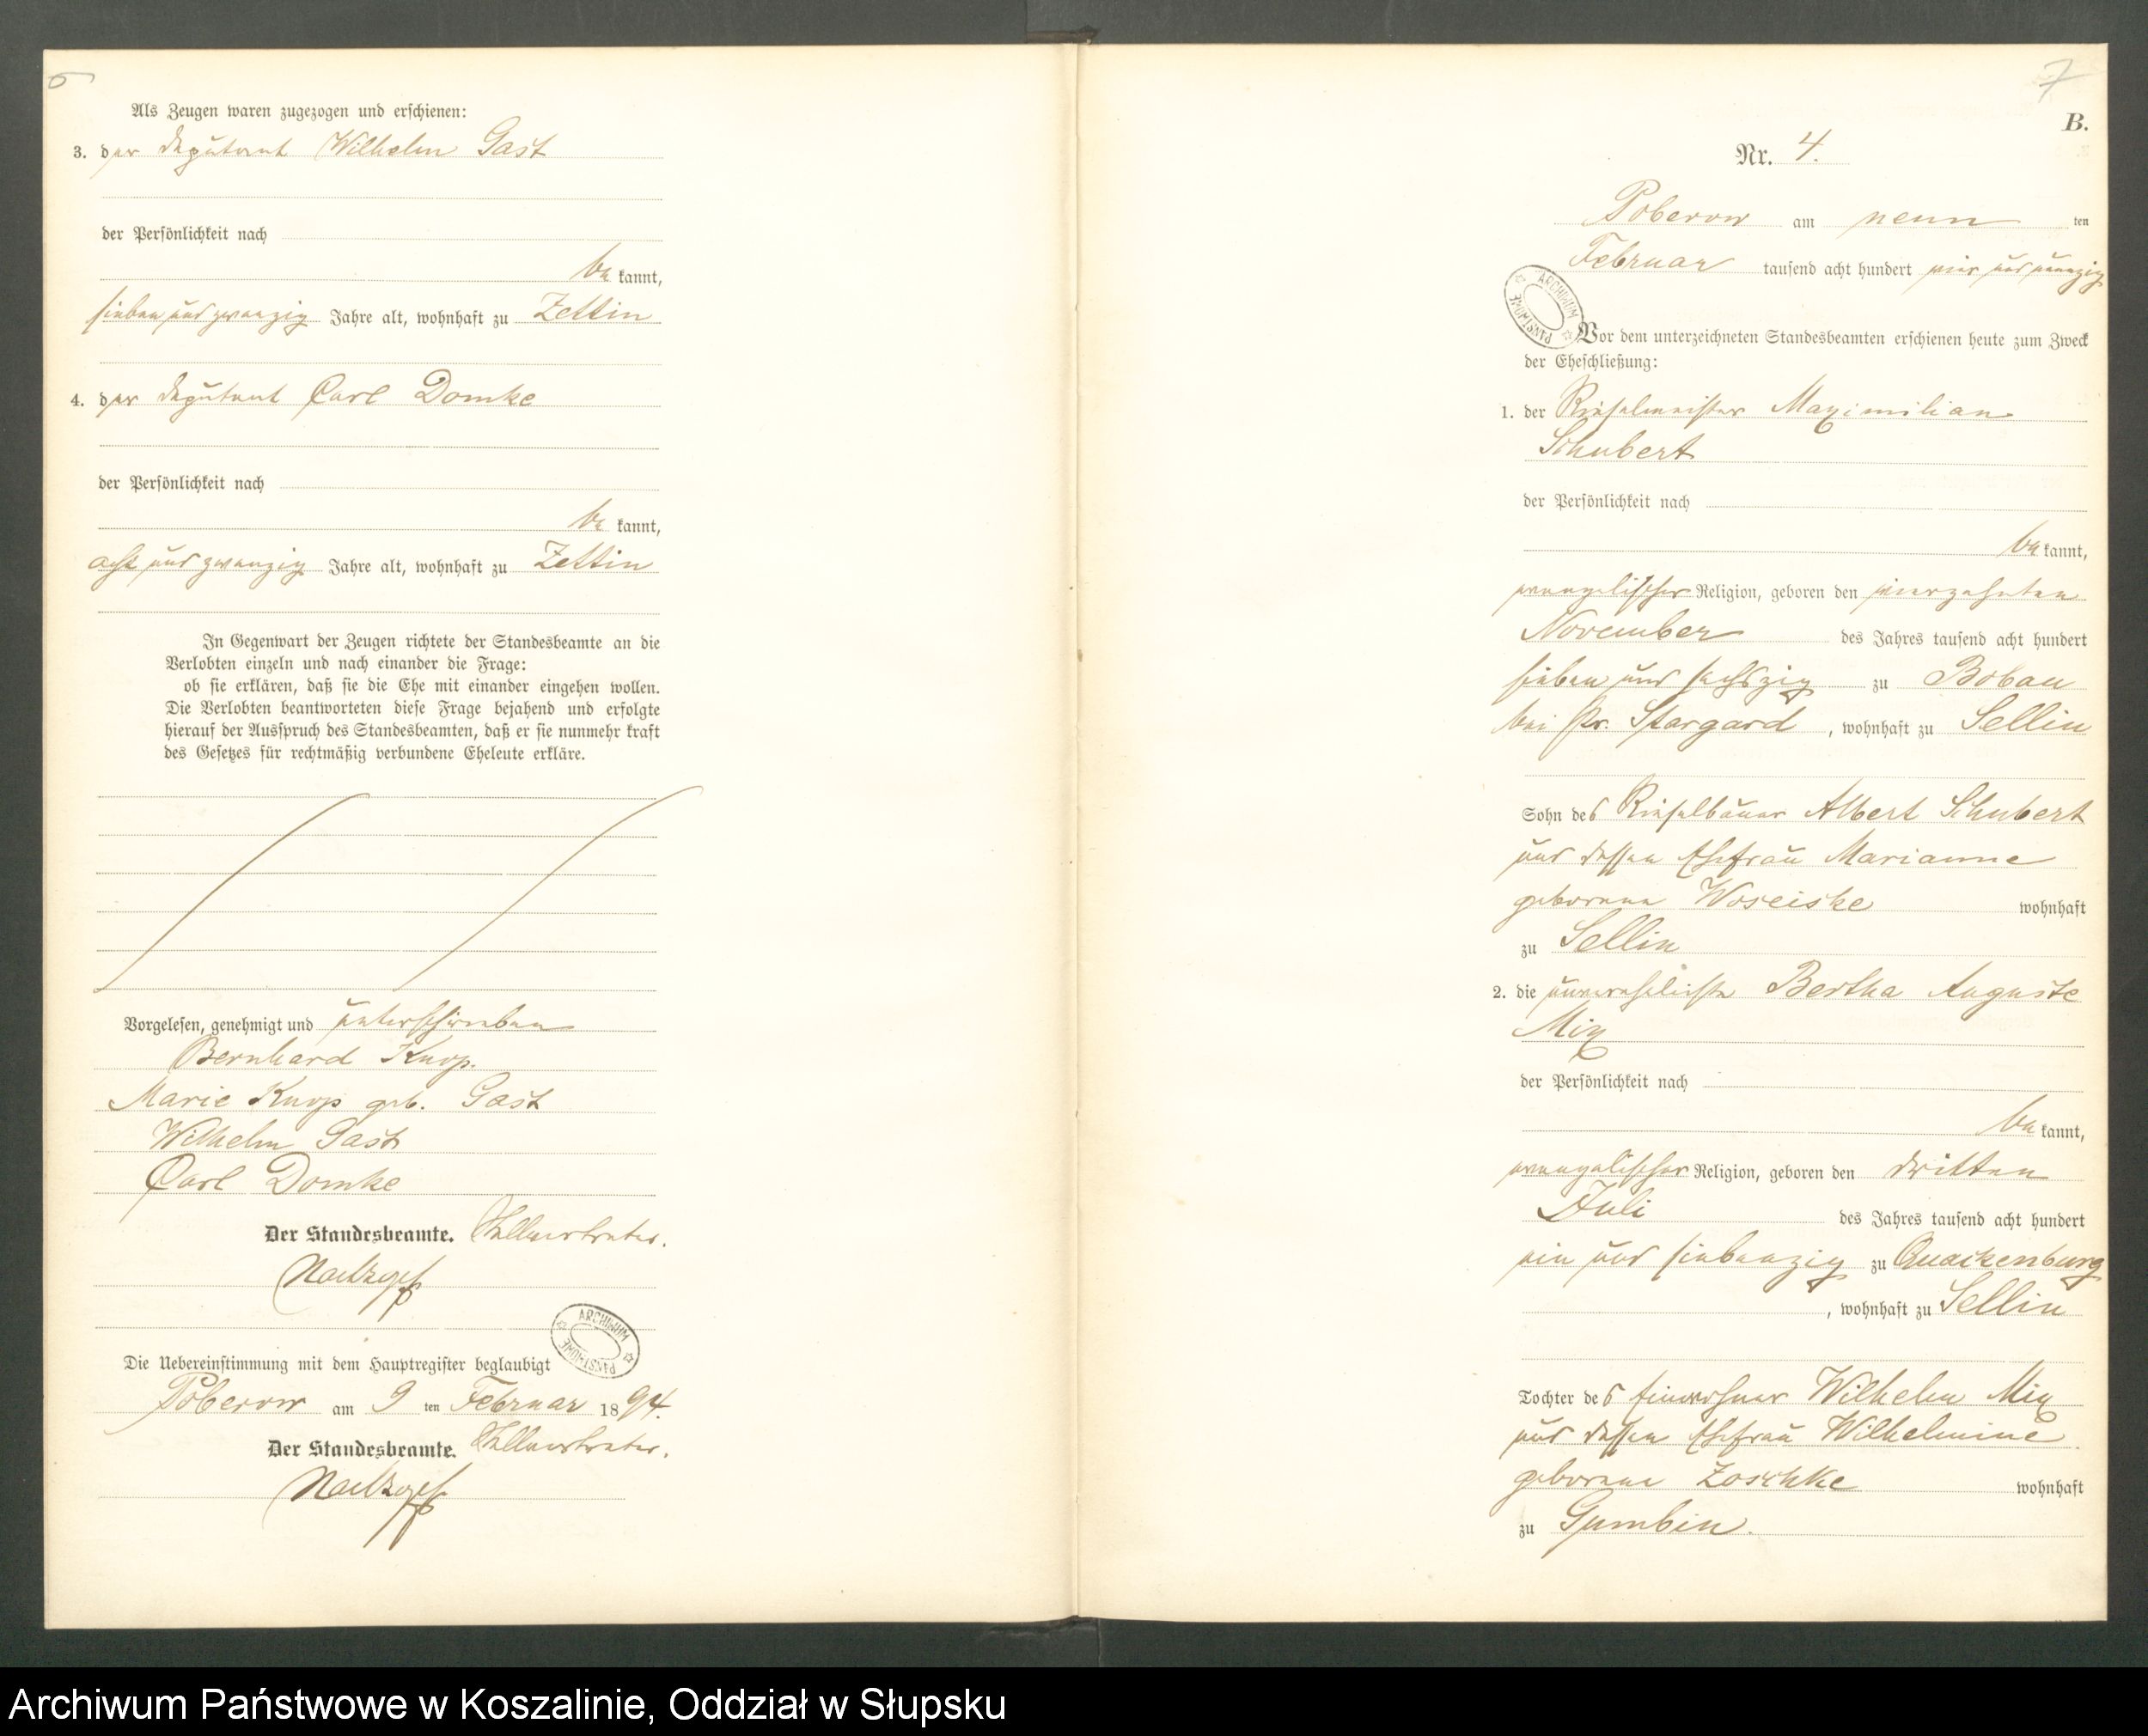 6
Als Zeugen waren zugezogen und erschienen:
3. der Deputant Wilhelm Gast
der Persönlichkeit nach
be kannt,
sieben und zwanzig Jahre alt, wohnhaft zu Zettin
4. der Deputant Carl Domke
der Persönlichkeit nach
be kannt,
acht und zwanzig Jahre alt, wohnhaft zu Zettin
In Gegenwart der Zeugen richtete der Standesbeamte an die
Verlobten einzeln und nach einander die Frage:
ob sie erklären, daß sie die Ehe mit einander eingehen wollen.
Die Verlobten beantworteten diese Frage bejahend und erfolgte
hierauf der Ausspruch des Standesbeamten, daß er sie nunmehr kraft
des Gesetzes für rechtmäßig verbundene Eheleute erkläre.
Vorgelesen, genehmigt und unterschrieben
Bernhard Knop.
Marie Knop geb. Gast
Wilhelm Gast
Carl Domke
Der Standesbeamte.
ARCHIWUM PAŃSTWOWE
Die Uebereinstimmung mit dem Hauptregister beglaubigt
Poberow am 9 ten Februar 1894.
Der Standesbeamte.
7
B.
Nr. 4.
Poberow am neun ten
Februar tausend acht hundert vier und neunzig
ARCHIWUM PAŃSTWOWE
Vor dem unterzeichneten Standesbeamten erschienen heute zum Zweck
der Eheschließung:
1. der Rieselmeister Maximilian
Schubert
der Persönlichkeit nach
be kannt,
evangelischer Religion, geboren den vierzehnten
November des Jahres tausend acht hundert
sieben und sechszig zu Bobau
bei Pr. Stargard, wohnhaft zu Sellin
Sohn des Rieselbauer Albert Schubert
und dessen Ehefrau Marianne
geborene wohnhaft
zu Sellin
2. die unverehelichte Bertha Auguste
Mix
der Persönlichkeit nach
be kannt,
evangelischer Religion, geboren den dritten
Juli des Jahres tausend acht hundert
ein und siebenzig zu Quackenburg
, wohnhaft zu Sellin
Tochter des Einwohner Wilhelm Mix
und dessen Ehefrau Wilhelmine
geborene Zoschke wohnhaft
zu Gumbin.
Archiwum Państwowe w Koszalinie, Oddział w Słupsku